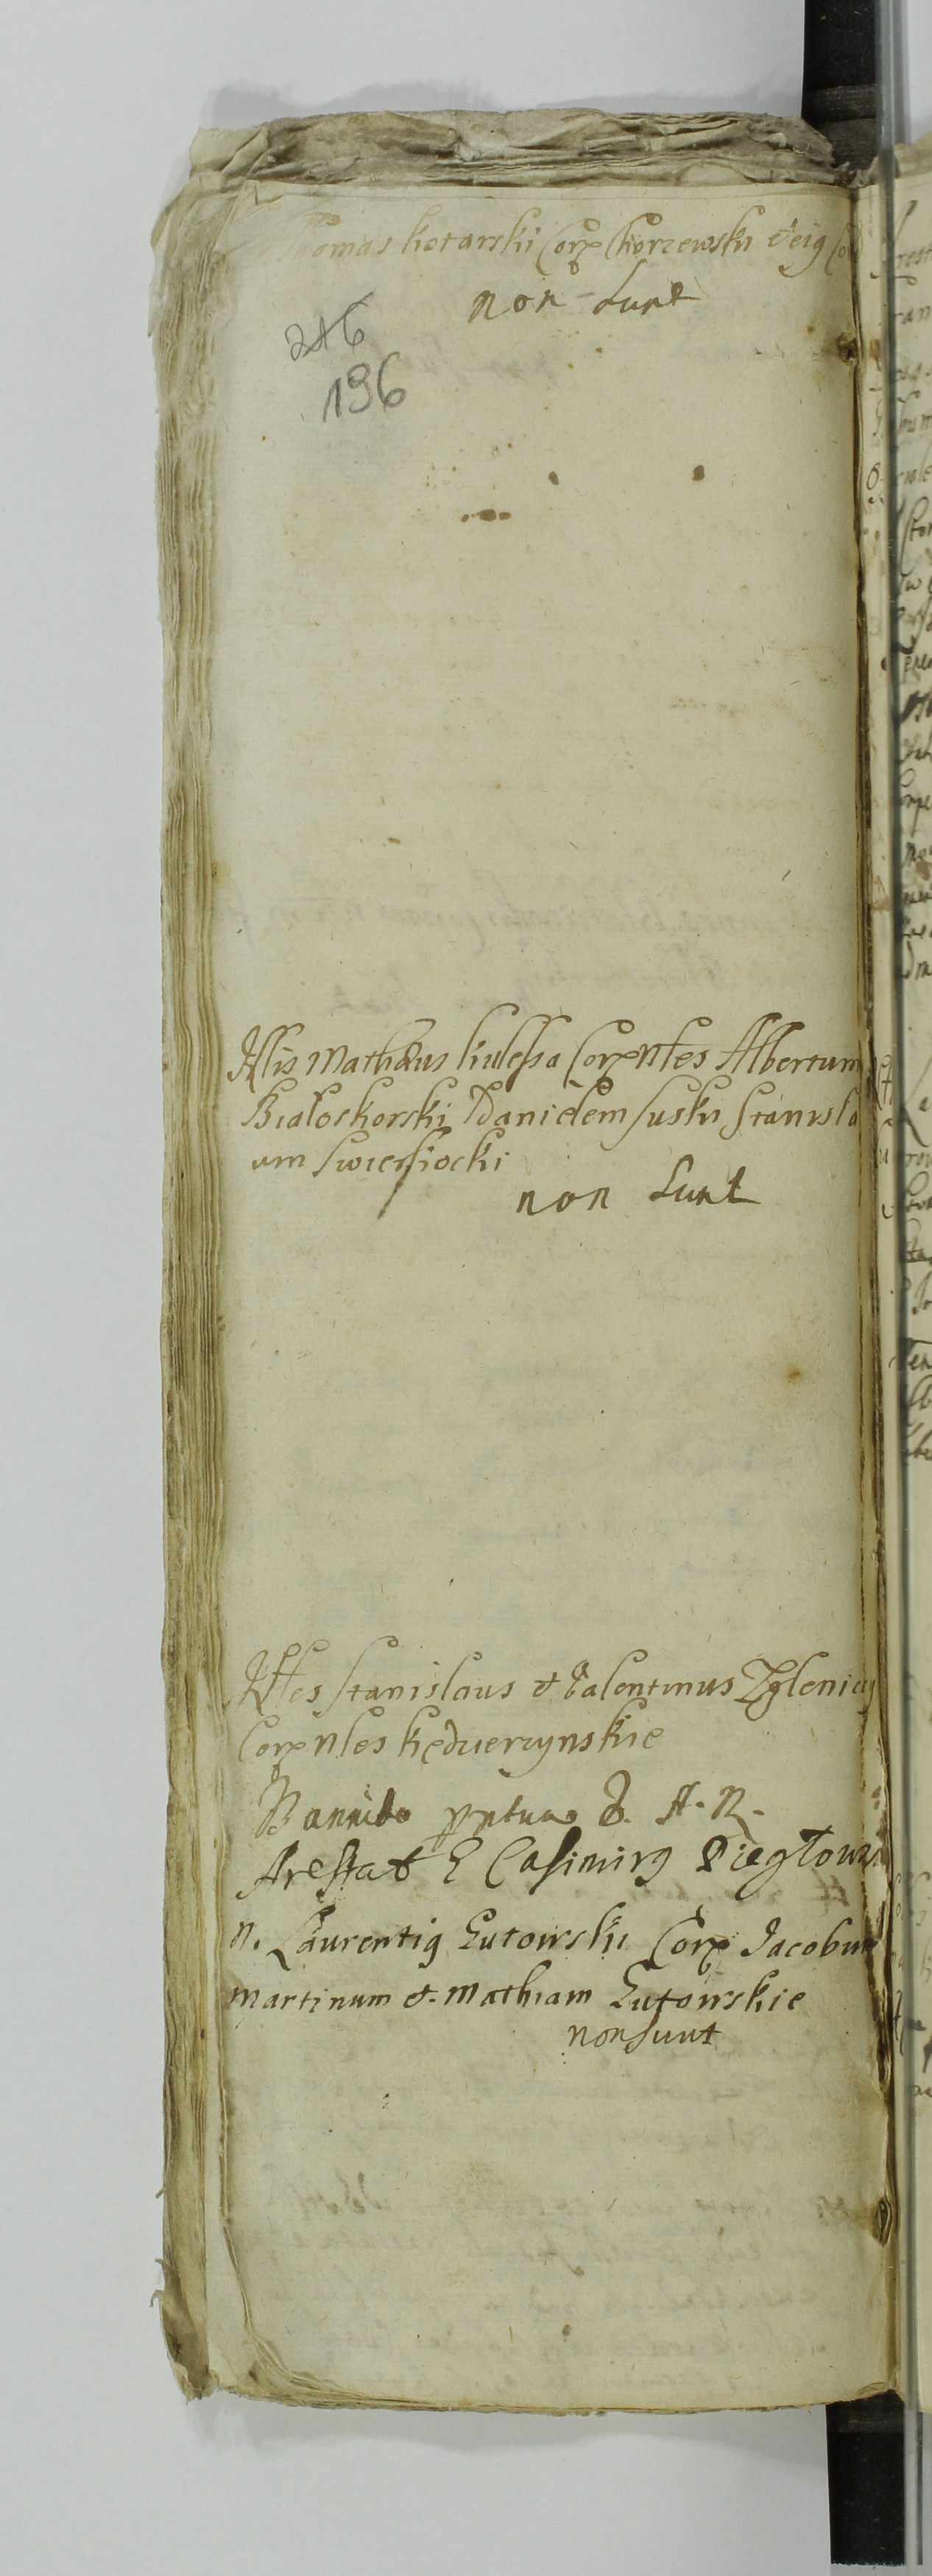 Thomas Kotarski Corx Chorzewski eiq
non sunt
216
196
Nlis Mathæus Kulessa Corxntes Albertum
Białoskorski Danielem Suski Stanisla
um Swiersiocki
non sunt
Nttes Stanislaus et Valentinus Zglenic
Corxntes Kędzierzynskie
Bannito pptua D. A. R.
Arestat E Casimirq
N. Laurentiq Lutowski Corx Jacobum
Martinum et Mathiam Lutowskie
non sunt